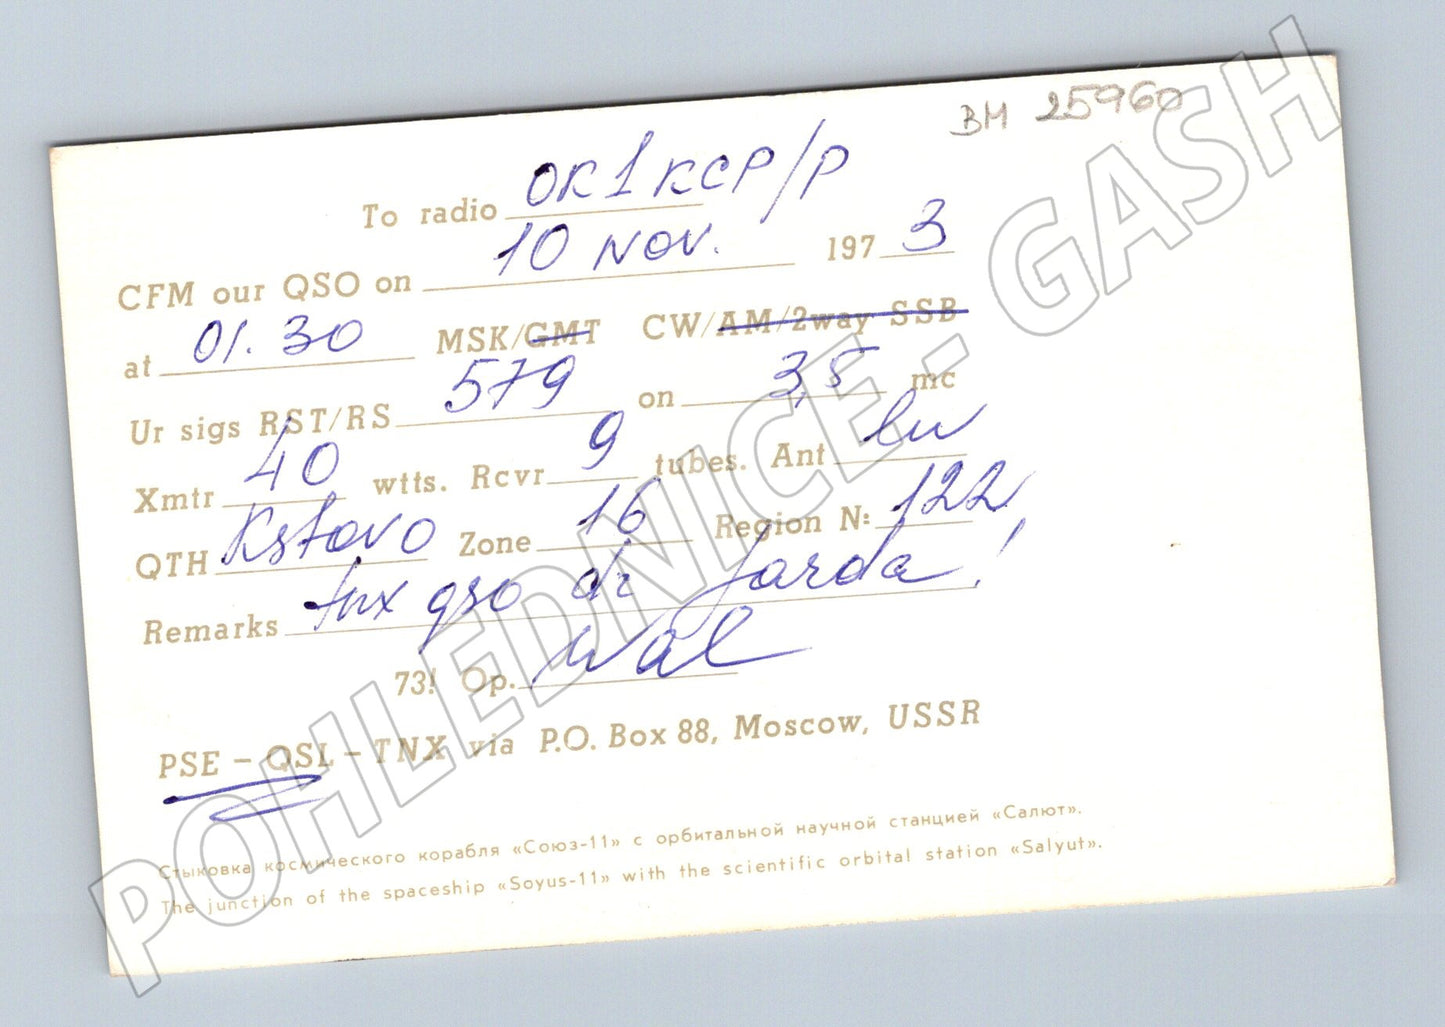 BM 25960
To radio OK1KCP/P
CFM our QSO on 10 Nov. 1973
at 01.30 MSK/GMT CW/AM/2way SSB
Ur sigs RST/RS 579 on 3,5 mc
Xmtr 40 wtts. Rcvr 9 tubes. Ant lw
QTH Kstovo Zone 16 Region №: 122
Remarks tnx qso dr Jarda!
73! Op. Wal
PSE – QSL – TNX via P.O. Box 88, Moscow, USSR
Стыковка космического корабля «Союз-11» с орбитальной научной станцией «Салют».
The junction of the spaceship «Soyus-11» with the scientific orbital station «Salyut».
POHLEDNICE - GASH